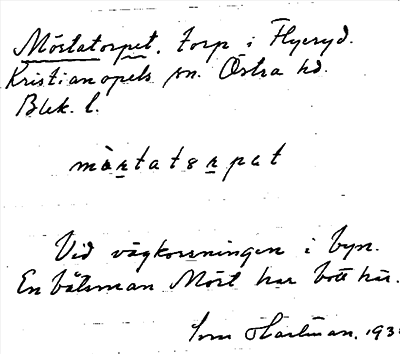 Mörtatorpet, torp i Flyeryd.
Kristianopels sn. Östra hd.
Blek. l.
Vid vägkorsningen i byn.
En båtsman Mört har bott här.
Hartman, 193